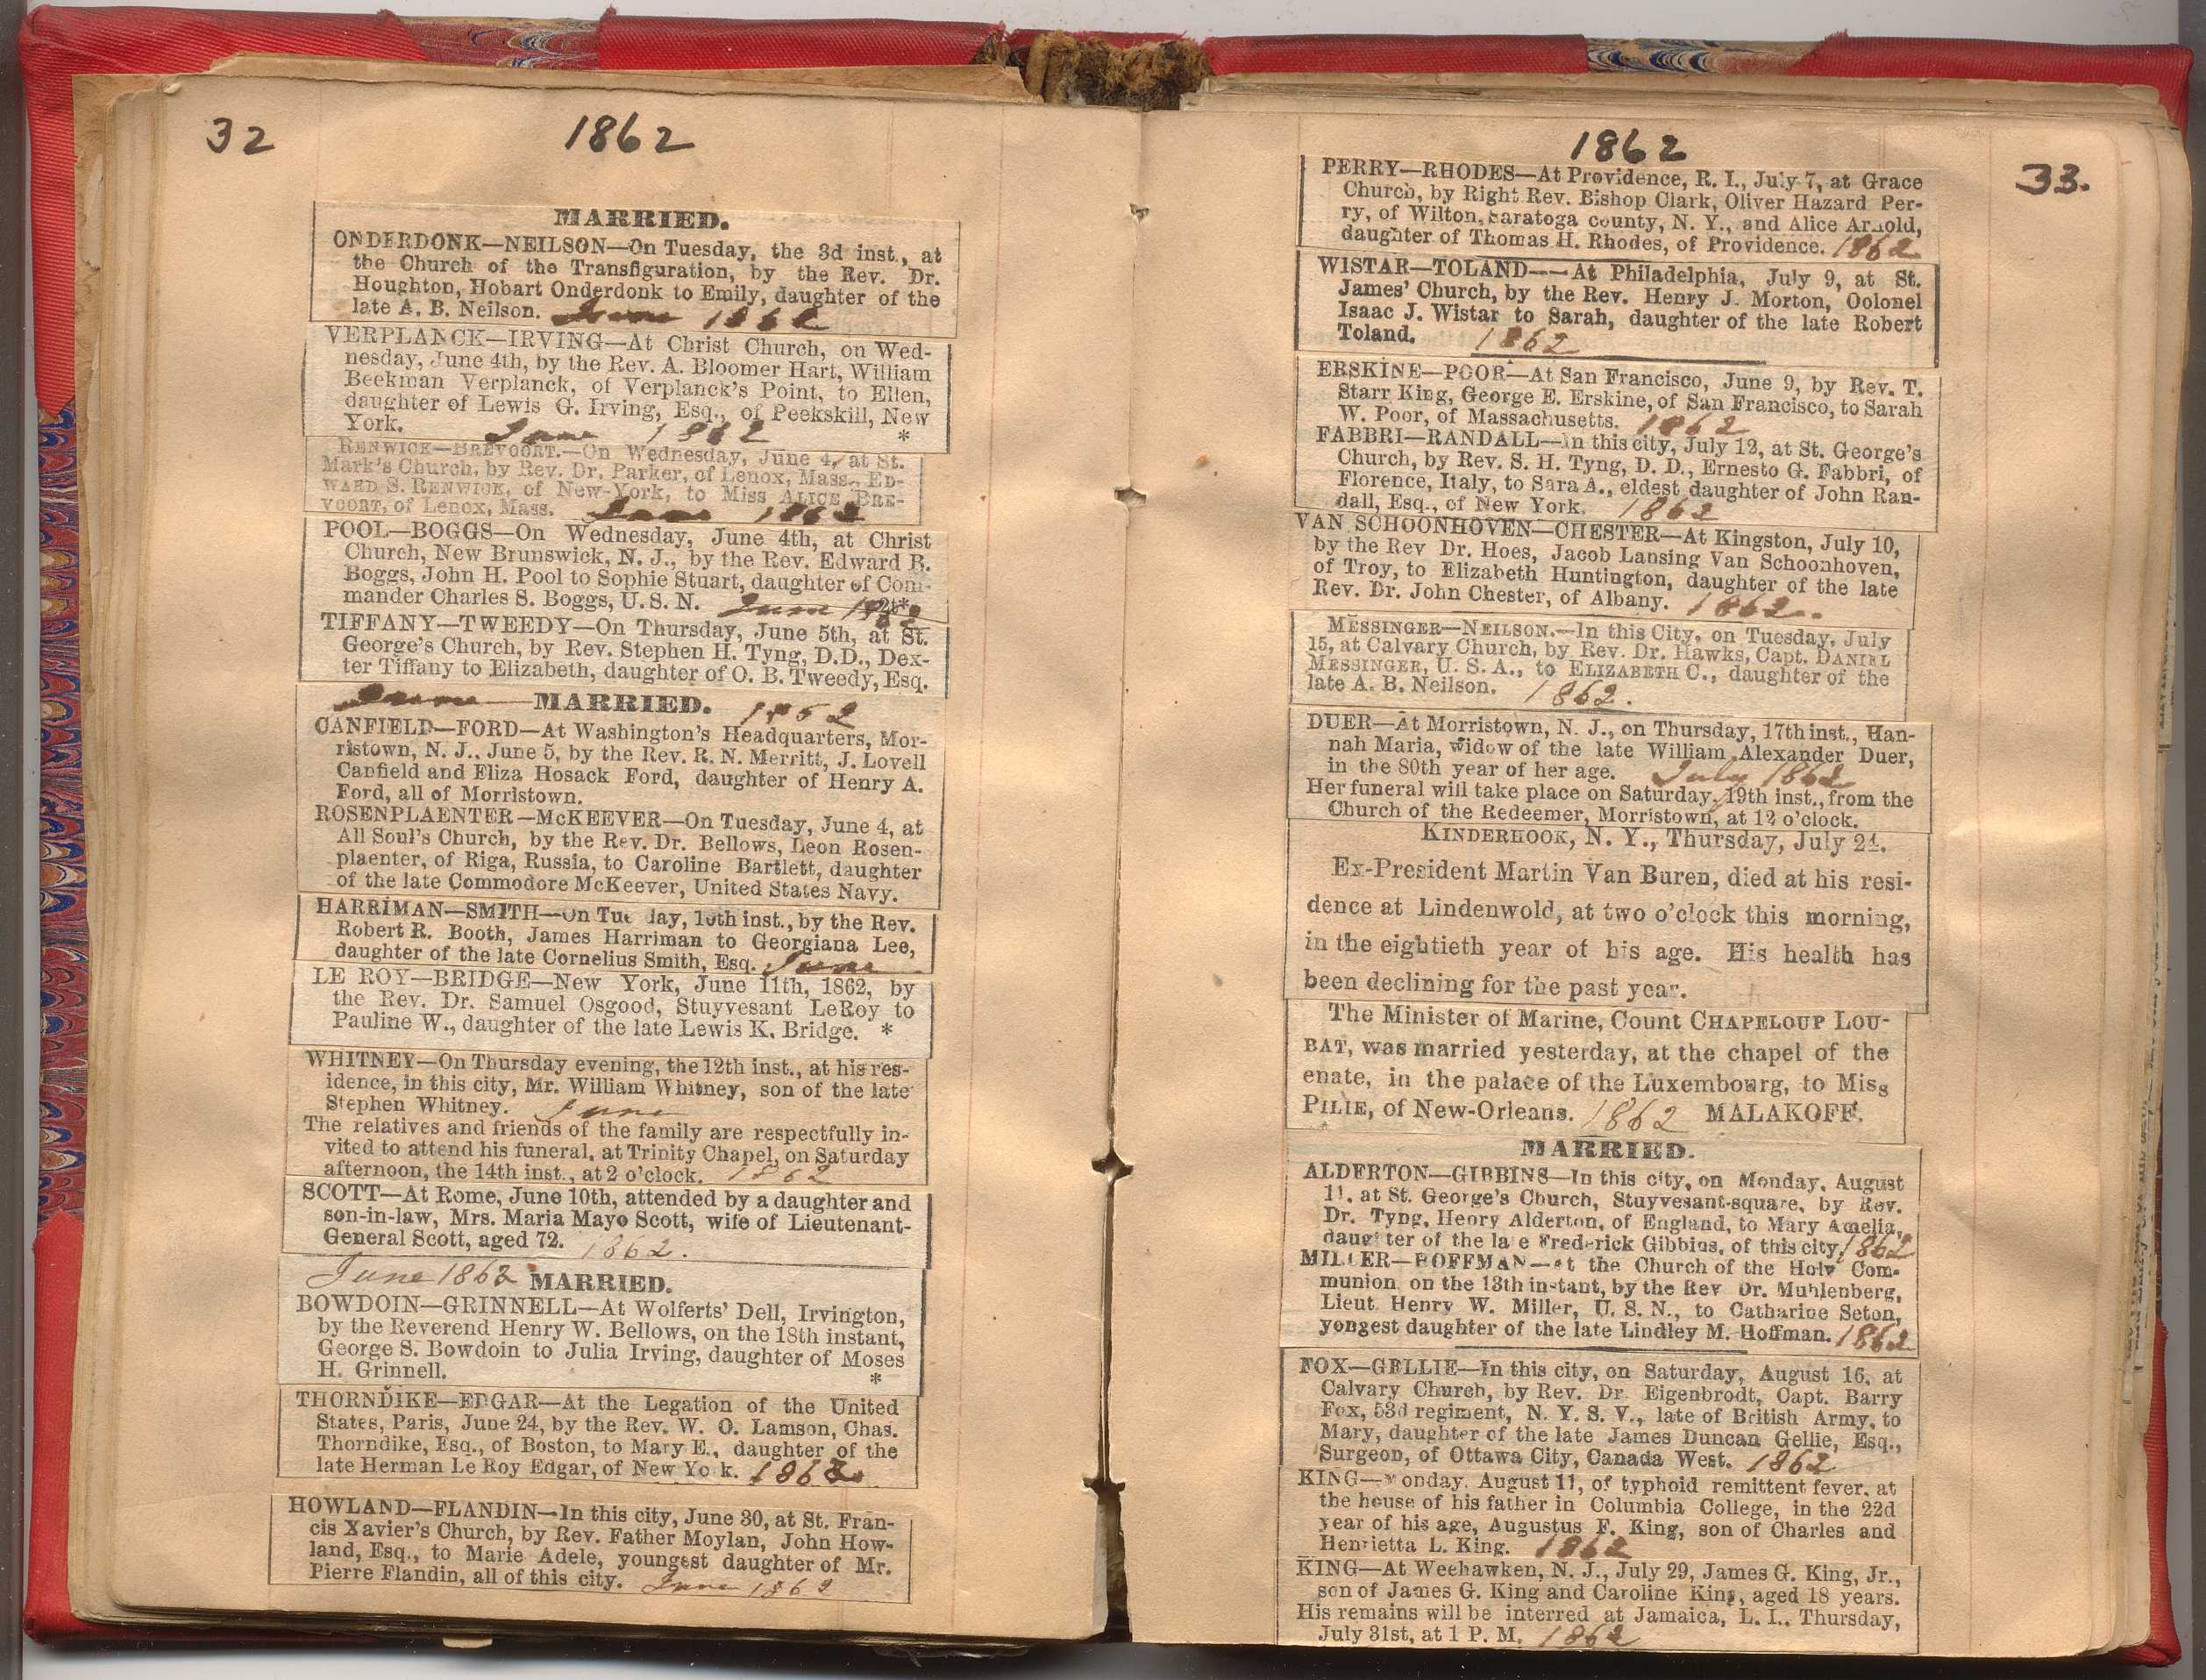 32
1862
MARRIED.
ONDERDONK—NEILSON—On Tuesday, the 3d inst., at
the Church of the Transfiguration, by the Rev. Dr.
Houghton, Hobart Onderdonk to Emily, daughter of the
late A. B. Neilson. June 1862
VERPLANCK—IRVING—At Christ Church, on Wed-
nesday, June 4th, by the Rev. A. Bloomer Hart, William
Beekman Verplanck, of Verplanck's Point, to Ellen,
daughter of Lewis G. Irving, Esq., of Peekskill, New
York. June 1862 *
RENWICK—BREVOORT.—On Wednesday, June 4, at St.
Mark's Church, by Rev. Dr. Parker, of Lenox, Mass., ED-
WARD S. RENWICK, of New-York, to Miss ALICE BRE-
VOORT, of Lenox, Mass. June 1862
POOL—BOGGS—On Wednesday, June 4th, at Christ
Church, New Brunswick, N. J., by the Rev. Edward B.
Boggs, John H. Pool to Sophie Stuart, daughter of Com-
mander Charles S. Boggs, U. S. N. June 1862
TIFFANY—TWEEDY—On Thursday, June 5th, at St.
George's Church, by Rev. Stephen H. Tyng, D.D., Dex-
ter Tiffany to Elizabeth, daughter of O. B. Tweedy, Esq.
June MARRIED. 1862
CANFIELD—FORD—At Washington's Headquarters, Mor-
ristown, N. J., June 5, by the Rev. R. N. Merritt, J. Lovell
Canfield and Eliza Hosack Ford, daughter of Henry A.
Ford, all of Morristown.
ROSENPLAENTER—McKEEVER—On Tuesday, June 4, at
All Soul's Church, by the Rev. Dr. Bellows, Leon Rosen-
plaenter, of Riga, Russia, to Caroline Bartlett, daughter
of the late Commodore McKeever, United States Navy.
HARRIMAN—SMITH—On Tue day, 10th inst., by the Rev.
Robert R. Booth, James Harriman to Georgiana Lee,
daughter of the late Cornelius Smith, Esq. June
LE ROY—BRIDGE—New York, June 11th, 1862, by
the Rev. Dr. Samuel Osgood, Stuyvesant LeRoy to
Pauline W., daughter of the late Lewis K. Bridge. *
WHITNEY—On Thursday evening, the 12th inst., at his res-
idence, in this city, Mr. William Whitney, son of the late
Stephen Whitney. June
The relatives and friends of the family are respectfully in-
vited to attend his funeral, at Trinity Chapel, on Saturday
afternoon, the 14th inst., at 2 o'clock. 1862
SCOTT—At Rome, June 10th, attended by a daughter and
son-in-law, Mrs. Maria Mayo Scott, wife of Lieutenant-
General Scott, aged 72. 1862.
June 1862 MARRIED.
BOWDOIN—GRINNELL—At Wolferts' Dell, Irvington,
by the Reverend Henry W. Bellows, on the 18th instant,
George S. Bowdoin to Julia Irving, daughter of Moses
H. Grinnell. *
THORNDIKE—EDGAR—At the Legation of the United
States, Paris, June 24, by the Rev. W. O. Lamson, Chas.
Thorndike, Esq., of Boston, to Mary E., daughter of the
late Herman Le Roy Edgar, of New Yo k. 1862
HOWLAND—FLANDIN—In this city, June 30, at St. Fran-
cis Xavier's Church, by Rev. Father Moylan, John How-
land, Esq., to Marie Adele, youngest daughter of Mr.
Pierre Flandin, all of this city. June 1862
1862
33.
PERRY—RHODES—At Providence, R. I., July 7, at Grace
Church, by Right Rev. Bishop Clark, Oliver Hazard Per-
ry, of Wilton, Saratoga county, N. Y., and Alice Arnold,
daughter of Thomas H. Rhodes, of Providence. 1862
WISTAR—TOLAND——At Philadelphia, July 9, at St.
James' Church, by the Rev. Henry J. Morton, Oolonel
Isaac J. Wistar to Sarah, daughter of the late Robert
Toland. 1862
ERSKINE—POOR—At San Francisco, June 9, by Rev. T.
Starr King, George E. Erskine, of San Francisco, to Sarah
W. Poor, of Massachusetts. 1862
FABBRI—RANDALL—In this city, July 12, at St. George's
Church, by Rev. S. H. Tyng, D. D., Ernesto G. Fabbri, of
Florence, Italy, to Sara A., eldest daughter of John Ran-
dall, Esq., of New York. 1862
VAN SCHOONHOVEN—CHESTER—At Kingston, July 10,
by the Rev Dr. Hoes, Jacob Lansing Van Schoonhoven,
of Troy, to Elizabeth Huntington, daughter of the late
Rev. Dr. John Chester, of Albany. 1862.
MESSINGER—NEILSON.—In this City, on Tuesday, July
15, at Calvary Church, by Rev. Dr. Hawks, Capt. DANIEL
MESSINGER, U. S. A., to ELIZABETH C., daughter of the
late A. B. Neilson. 1862.
DUER—At Morristown, N. J., on Thursday, 17th inst., Han-
nah Maria, widow of the late William Alexander Duer,
in the 80th year of her age. July 1862
Her funeral will take place on Saturday, 19th inst., from the
Church of the Redeemer, Morristown, at 12 o'clock.
KINDERHOOK, N. Y., Thursday, July 24.
Ex-President Martin Van Buren, died at his resi-
dence at Lindenwold, at two o'clock this morning,
in the eightieth year of his age. His health has
been declining for the past year.
The Minister of Marine, Count CHAPELOUP LOU-
BAT, was married yesterday, at the chapel of the
enate, in the palace of the Luxembourg, to Miss
PILIE, of New-Orleans. 1862 MALAKOFF.
MARRIED.
ALDERTON—GIBBINS—In this city, on Monday, August
11, at St. George's Church, Stuyvesant-square, by Rev.
Dr. Tyng, Henry Alderton, of England, to Mary Amelia,
daug ter of the la e Frederick Gibbins, of this city. 1862
MILLER—HOFFMAN—At the Church of the Holy Com-
munion, on the 13th instant, by the Rev Dr. Muhlenberg,
Lieut Henry W. Miller, U. S. N., to Catharine Seton,
yongest daughter of the late Lindley M. Hoffman. 1862
FOX—GELLIE—In this city, on Saturday, August 16, at
Calvary Church, by Rev. Dr. Eigenbrodt, Capt. Barry
Fox, 53d regiment, N. Y. S. V., late of British Army, to
Mary, daughter of the late James Duncan Gellie, Esq.,
Surgeon, of Ottawa City, Canada West. 1862
KING—Monday, August 11, of typhoid remittent fever, at
the house of his father in Columbia College, in the 22d
year of his age, Augustus F. King, son of Charles and
Henrietta L. King. 1862
KING—At Weehawken, N. J., July 29, James G. King, Jr.,
son of James G. King and Caroline King, aged 18 years.
His remains will be interred at Jamaica, L. I., Thursday,
July 31st, at 1 P. M. 1862